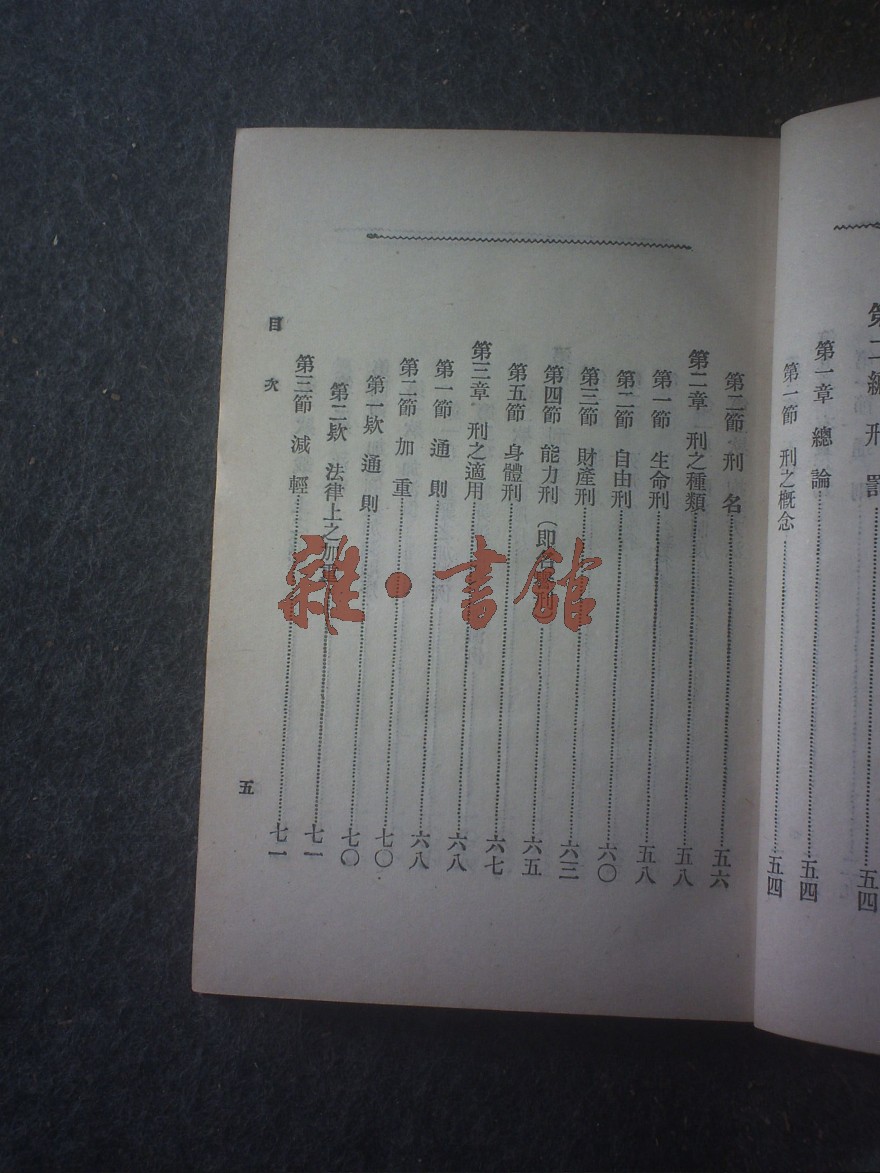 第二編 刑 罰 五四
第一章 總 論 五四
第一節 刑之概念 五四
第二節 刑 名 五六
第二章 刑之種類 五八
第一節 生命刑 五八
第二節 自由刑 六〇
第三節 財產刑 六三
第四節 能力刑 (即名 六五
第五節 身體刑 六七
第三章 刑之適用 六八
第一節 通 則 六八
第二節 加 重 七〇
第一欵 通 則 七〇
第二欵 法律上之加重 七一
第三節 減 輕 七一
目 次
五
雜·書館